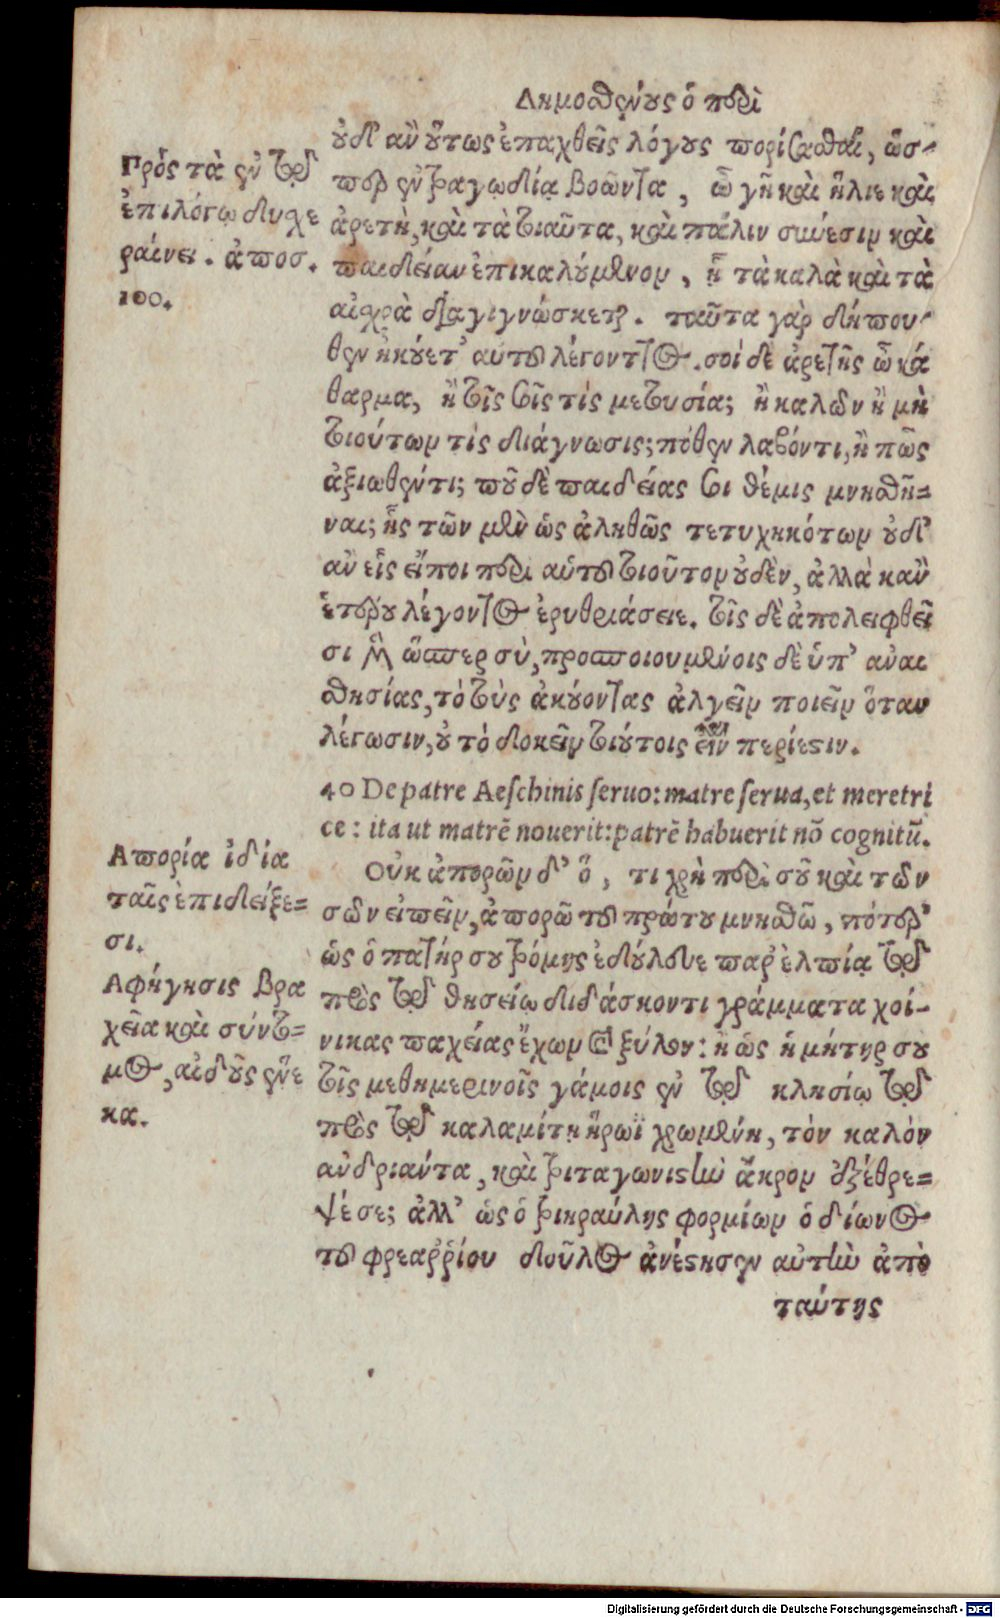 Δημοσθένους ὁ περὶ
οὐδ' ἂν οὕτως ἐπαχθεῖς λόγους πορίσασθαι, ὥσ-
περ ἐν τραγωδίᾳ βοῶντα, ὦ γῆ καὶ ἥλιε καὶ
ἀρετὴ, καὶ τὰ τοιαῦτα, καὶ πάλιν σύνεσιν καὶ
παιδείαν ἐπικαλούμενον, ᾗ τὰ καλὰ καὶ τὰ
αἰσχρὰ διαγιγνώσκεται. ταῦτα γὰρ δήπου-
θεν ἠκούετ' αὐτοῦ λέγοντος. σοὶ δὲ ἀρετῆς ὦ κά
θαρμα, ἢ τοῖς σοῖς τίς μετουσία; ἢ καλῶν ἢ μὴ
τοιούτων τίς διάγνωσις; πόθεν λαβόντι, ἢ πῶς
ἀξιωθέντι; ποῦ δὲ παιδείας σοι θέμις μνησθῆ-
ναι; ἧς τῶν μὲν ὡς ἀληθῶς τετυχηκότων οὐδ'
ἂν εἷς εἴποι περὶ αὑτοῦ τοιοῦτον οὐδὲν, ἀλλὰ κἂν
ἑτέρου λέγοντος ἐρυθριάσειε. τοῖς δὲ ἀπολειφθεῖ
σι μὲν ὥσπερ σὺ, προσποιουμένοις δὲ ὑπ' αναι
σθησίας, τὸ τοὺς ἀκούοντας ἀλγεῖν ποιεῖν ὅταν
λέγωσιν, οὐ τὸ δοκεῖν τοιούτοις εἶναι περίεστιν.
40 De patre Aeschinis seruo: matre serua, et meretri
ce: ita ut matrē nouerit: patrē habuerit nō cognitū.
Οὐκ ἀπορῶν δ' ὅ, τι χρὴ περὶ σοῦ καὶ τῶν
σῶν εἰπεῖν, ἀπορῶ τοῦ πρώτου μνησθῶ, πότερ'
ὡς ὁ πατήρ σου τρόμης ἐδούλευε παρ' ἐλπίᾳ τῷ
πρὸς τῷ θησείῳ διδάσκοντι γράμματα χοί-
νικας παχείας ἔχων καὶ ξύλον: ἢ ὡς ἡ μήτηρ σου
τοῖς μεθημερινοῖς γάμοις ἐν τῷ κλησίῳ τῷ
πρὸς τῷ καλαμίτῃ ἥρωϊ χρωμένη, τὸν καλὸν
ανδριάντα, καὶ τριταγωνιστὴν ἄκρον ἐξέθρε-
ψέ σε; ἀλλ' ὡς ὁ τριηραύλης φορμίων ὁ δίωνος
τοῦ φρεαῤῥίου δοῦλος ἀνέστησεν αὐτὴν ἀπὸ
ταύτης
Πρὸς τὰ ἐν τῷ
ἐπιλόγῳ δυσχε
ραίνει. ἀποσ.
100.
Απορία ἰδία
ταῖς ἐπιδείξε-
σι.
Αφήγησις βρα
χεῖα καὶ σύντο-
μος, αἰδοῦς ἕνε
κα.
Digitalisierung gefördert durch die Deutsche Forschungsgemeinschaft - DFG